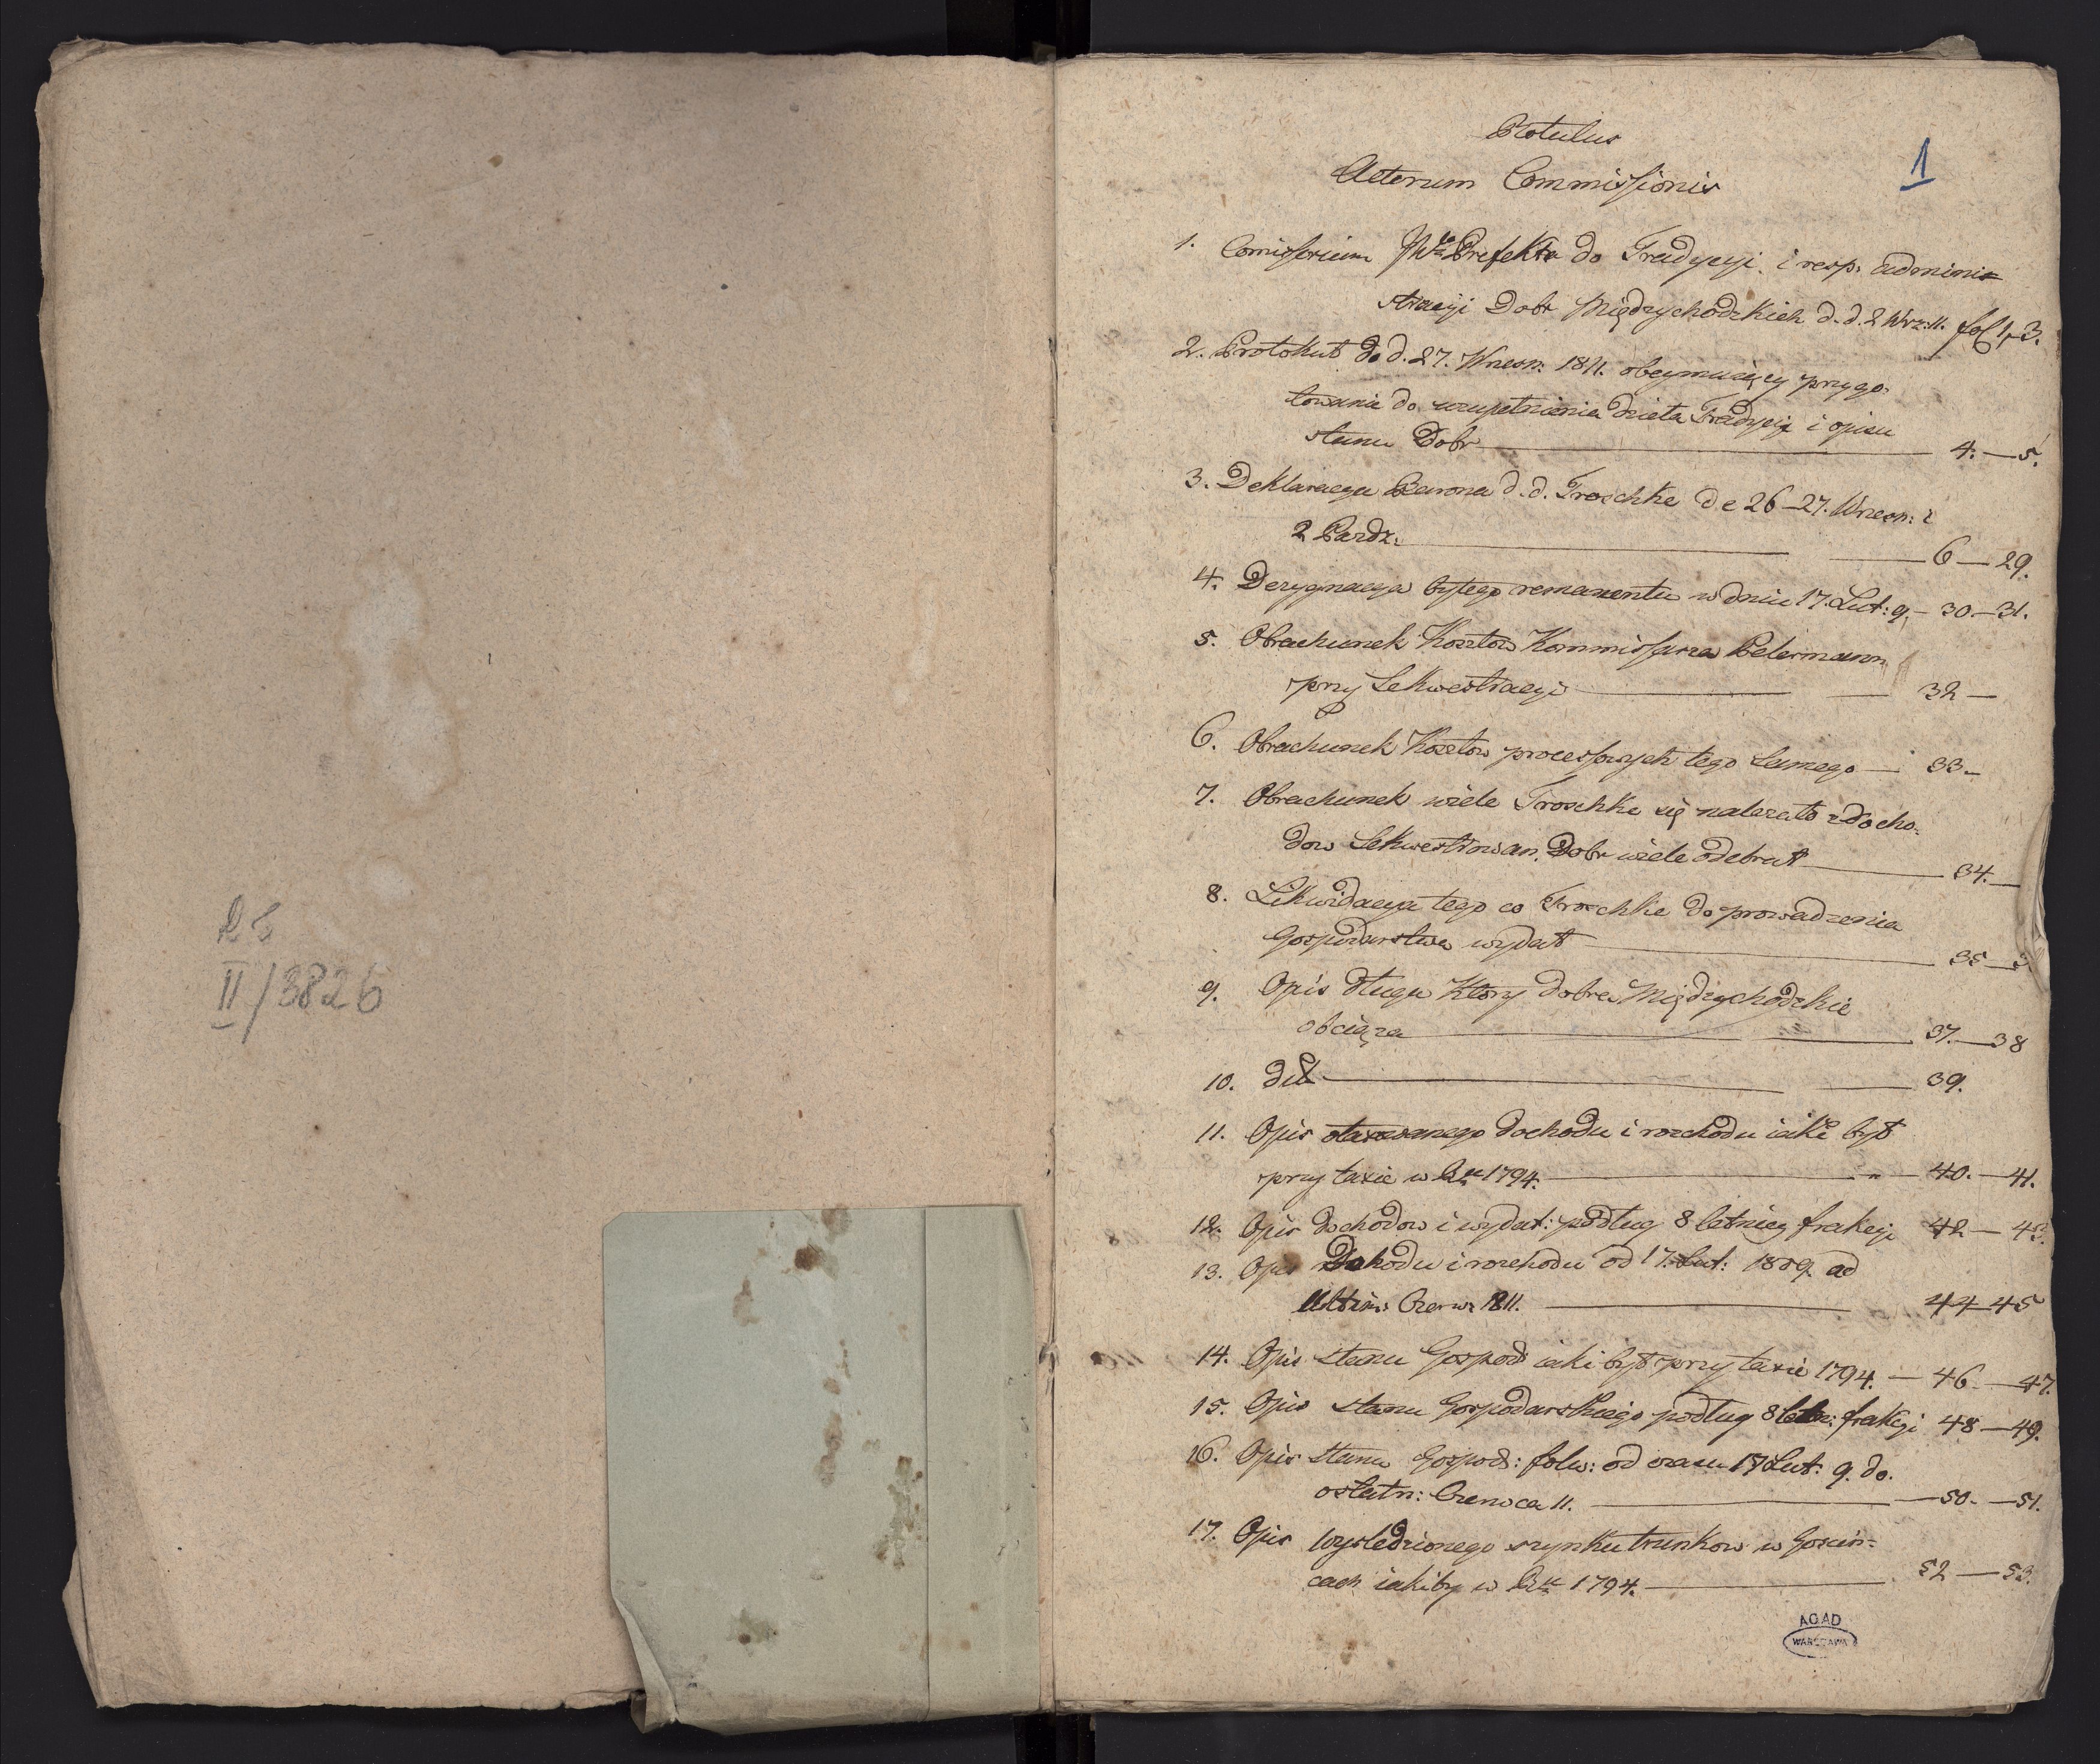 RS
II/3826
1
Rotulus
Actorum Commissionis
1. Comissorium JWgo Prefekta do Tradycyi i resp. adminis-
stracyi Dobr Międzychodzkich d. d. 2 Wrz: 11. fol 1-3.
2. Protokuł de d. 27. Wrzesn. 1811. obeymuiący przygo-
towanie do uzupełnienia dzieła Tradycyi i opisu
stanu Dobr 4.—5.
3. Deklaracya Barona d. d. Troschke de 26-27. Wrzesn: i
2 Pazdz. 6—29.
4. Dezygnacya byłego remanentu w dniu 17. Lut: 9. — 30.—31.
5. Obrachunek Kosztow Kommissarza Petermann
przy Sekwestracyi 32—
6. Obrachunek Kosztow processowych tego samego — 33—
7. Obrachunek wiele Troschke się należało z docho-
dow Sekwestrowan. Dobr wiele odebrał 34.—
8. Likwidacya tego co Troschke do prowadzenia
Gospodarstwa wydał 35—3
9. Opis długu Ktory dobra Międzychodzkie
obciąża 37.—38
10. dito 39.
11. Opis otaxowanego dochodu i rozchodu iaki był
przy taxie w Rku 1794. 40.—41.
12. Opis dochodow i wydat: podług 8 letniey frakcyi 42—43.
13. Opis Dochodu i rozchodu od 17. Lut: 1809. ad
Ultim: Czerw: 1811. 44 45
14. Opis stanu Gospod: iaki był przy taxie 1794. — 46.—47.
15. Opis stanu Gospodarskiego podług 8 letn: frakcyi 48—49.
16. Opis stanu Gospod: folw: od czasu 17 Lut: 9. do.
ostatn: Czerwca 11. —50.—51.
17. Opis wysledzionego szynku trunkow w Gościn-
cach iaki by w Rku 1794. 52—53.
AGAD
WARSZAWA